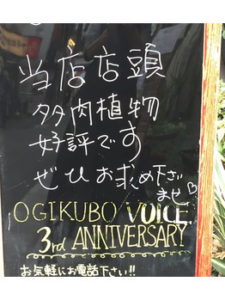 当店店頭
多肉植物
好評です
ぜひお求め下さい
ませ♡
OGIKUBO VOICE
3rd ANNIVERSARY
お気軽にお電話下さい!!